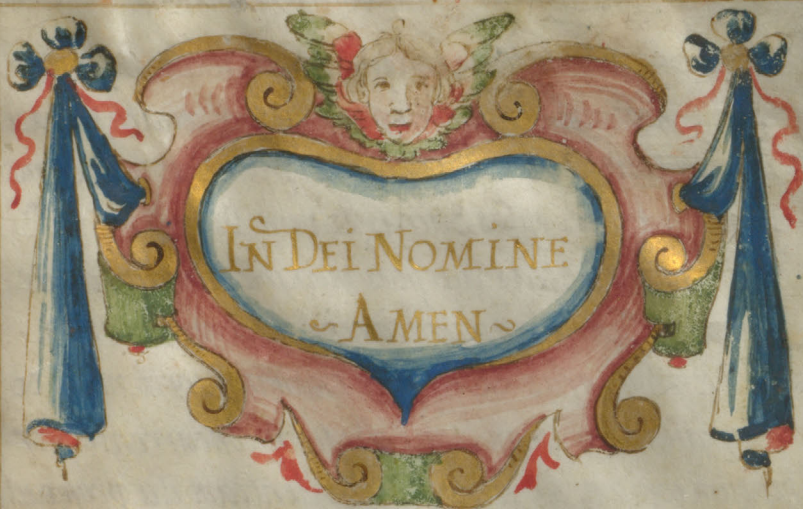 In Dei Nomine
~ Amen ~